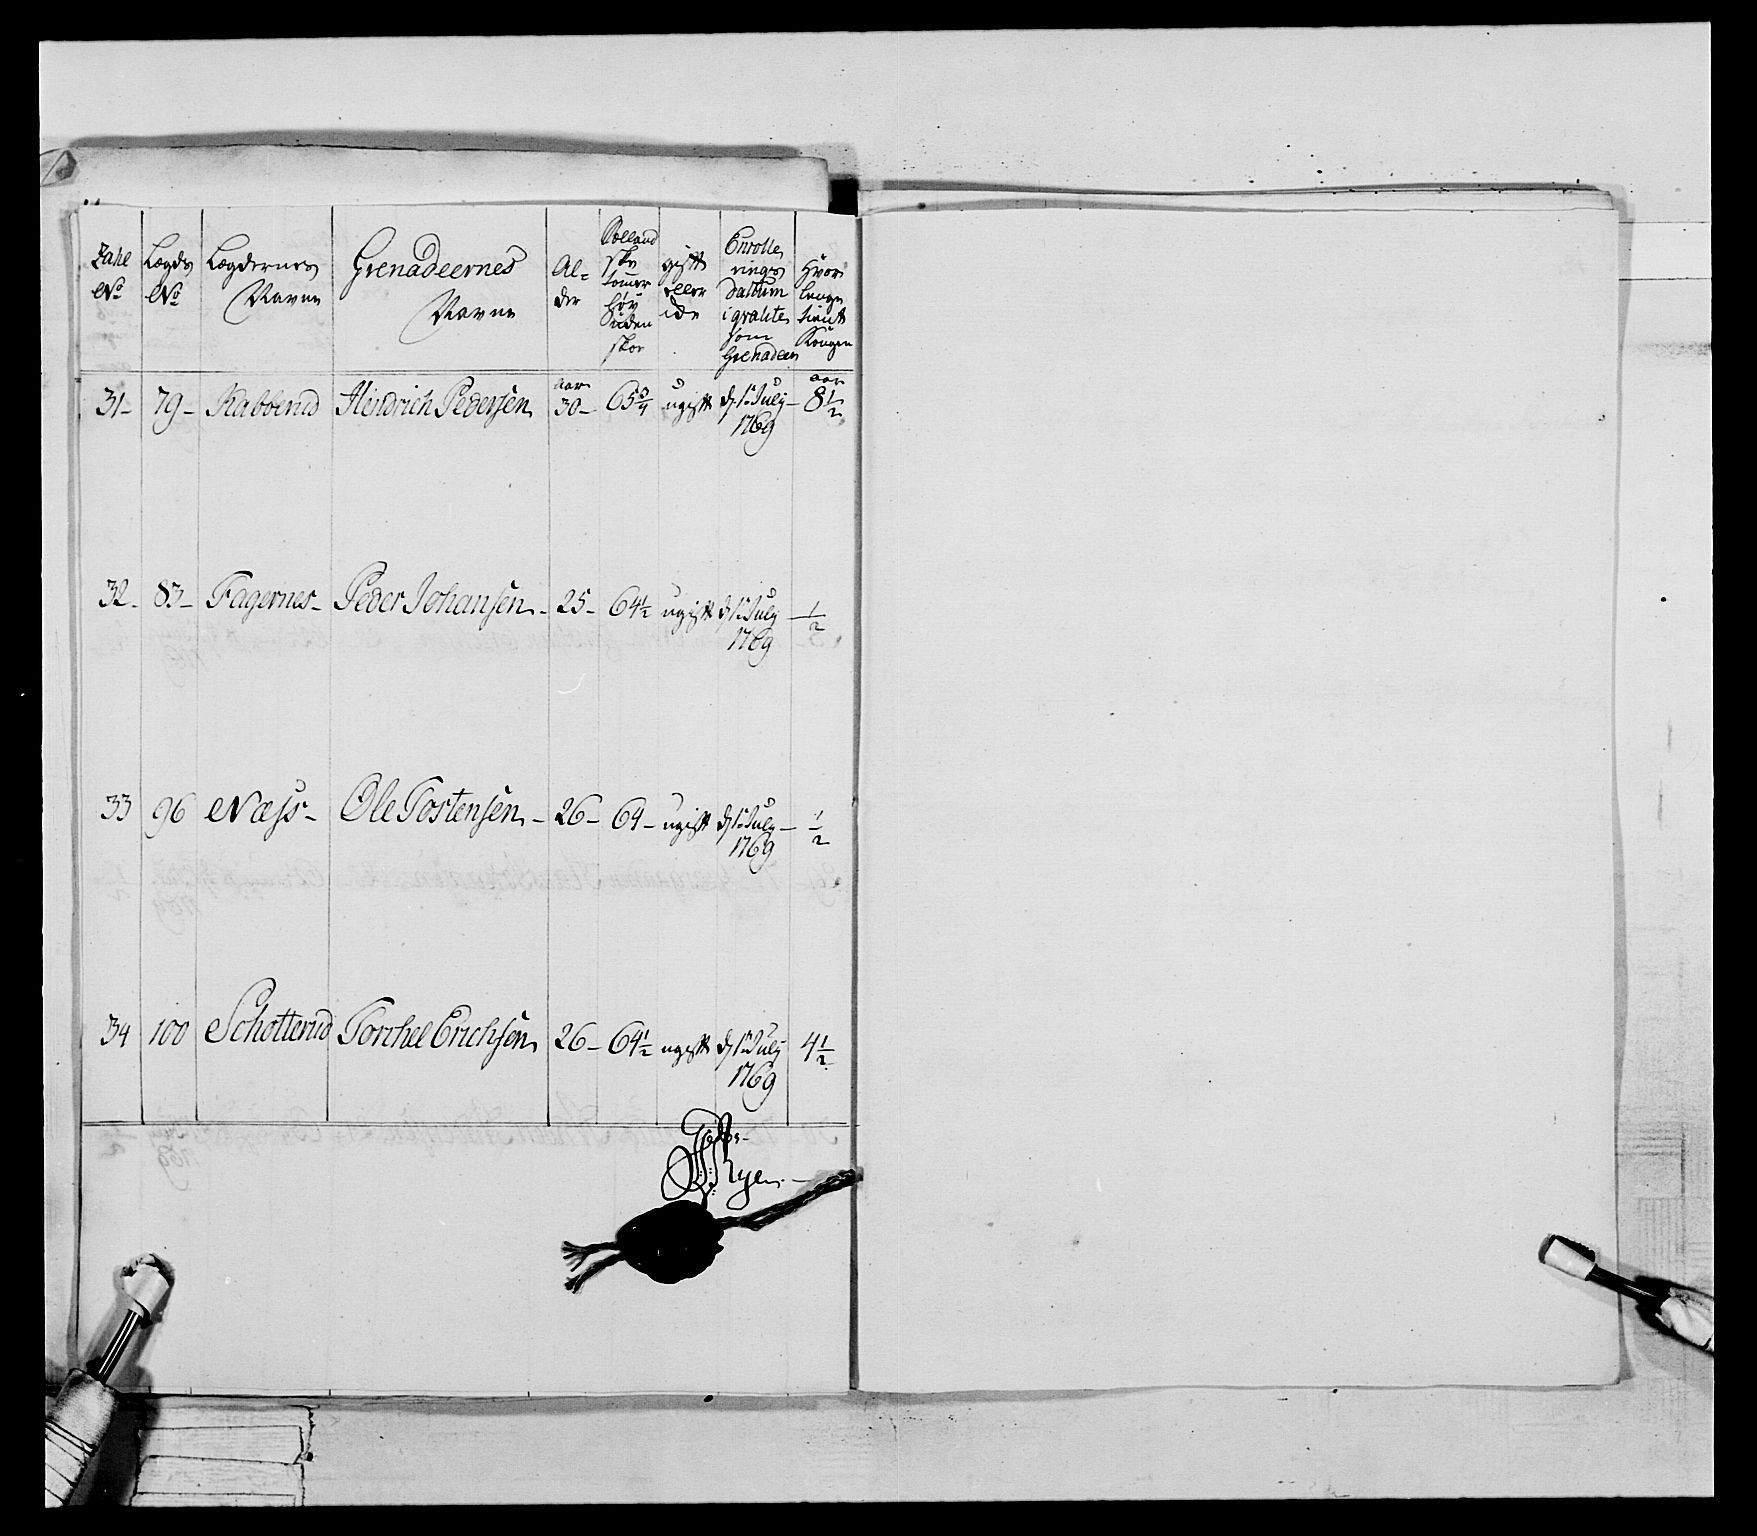 Zahl No
Lægds No
Lægdernes Navne
Grenadeernes Navne
Al= der
Hollandske tomer høy uden skoe
gift eller ide
Enrollerings Datum i qvalite som Grenadeer
Hvor lenge tient Kongen
31- 79- Rabberud Hendrich Pedersen aar 30- 65 3/4 ugift d 1ste July 1769 aar 8 1/2
32- 83- Fagernes- Peder Johansen- 25- 64 1/2 ugift d 1ste July 1769 - 1/2
33 96 Næss- Ole Tostensen- 26- 64- ugift d 1ste July 1769 - 1/2
34 100 Schotterud Torchel Erichsen 26- 64 1/2 ugift d 1ste July 1769 4 1/2
Rye